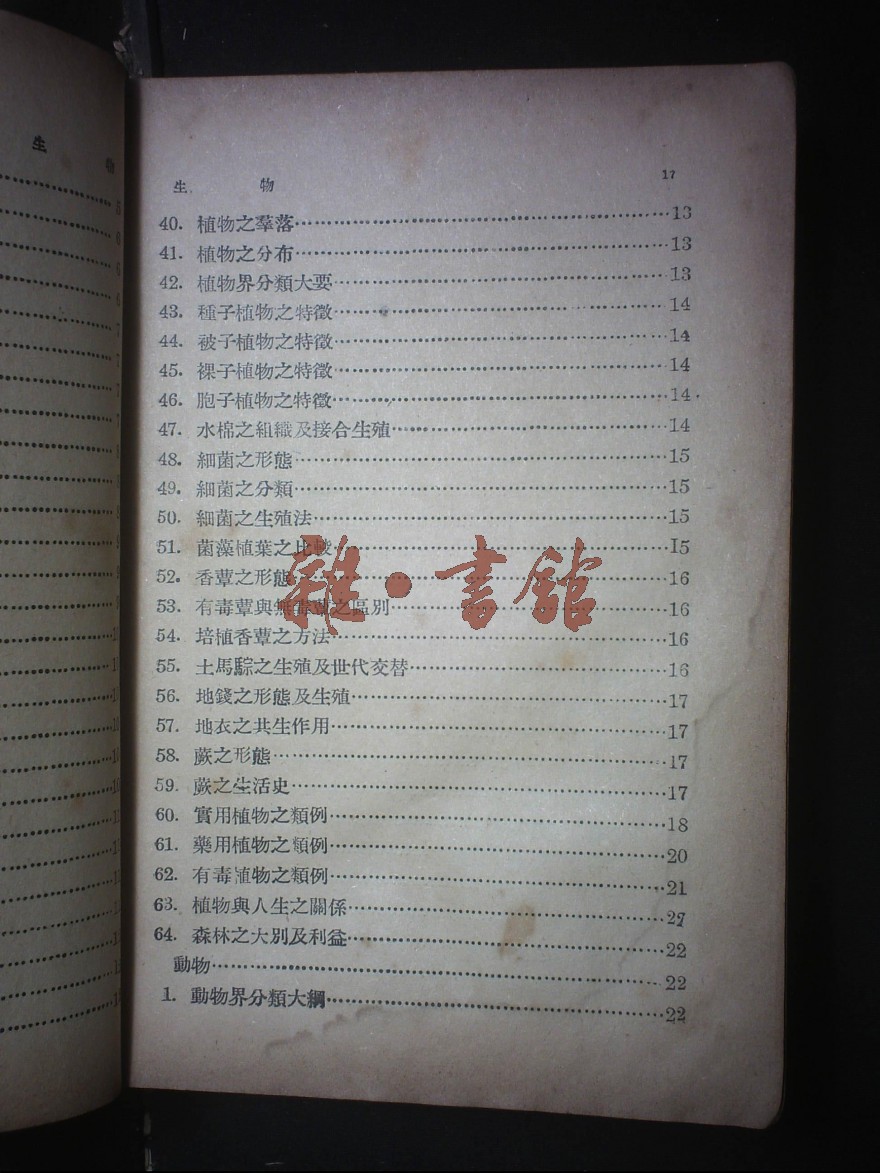 生 物
生 物 17
40. 植物之羣落 13
41. 植物之分布 13
42. 植物界分類大要 13
43. 種子植物之特徵 14
44. 被子植物之特徵 14
45. 裸子植物之特徵 14
46. 胞子植物之特徵 14
47. 水棉之組織及接合生殖 14
48. 細菌之形態 15
49. 細菌之分類 15
50. 細菌之生殖法 15
51. 菌藻植葉之比較 15
52. 香蕈之形態 16
53. 有毒蕈與無毒蕈之區別 16
54. 培植香蕈之方法 16
55. 土馬騌之生殖及世代交替 16
56. 地錢之形態及生殖 17
57. 地衣之共生作用 17
58. 蕨之形態 17
59. 蕨之生活史 17
60. 實用植物之類例 18
61. 藥用植物之類例 20
62. 有毒植物之類例 21
63. 植物與人生之關係
64. 森林之大別及利益 22
動物 22
1. 動物界分類大綱 22
雜·書館